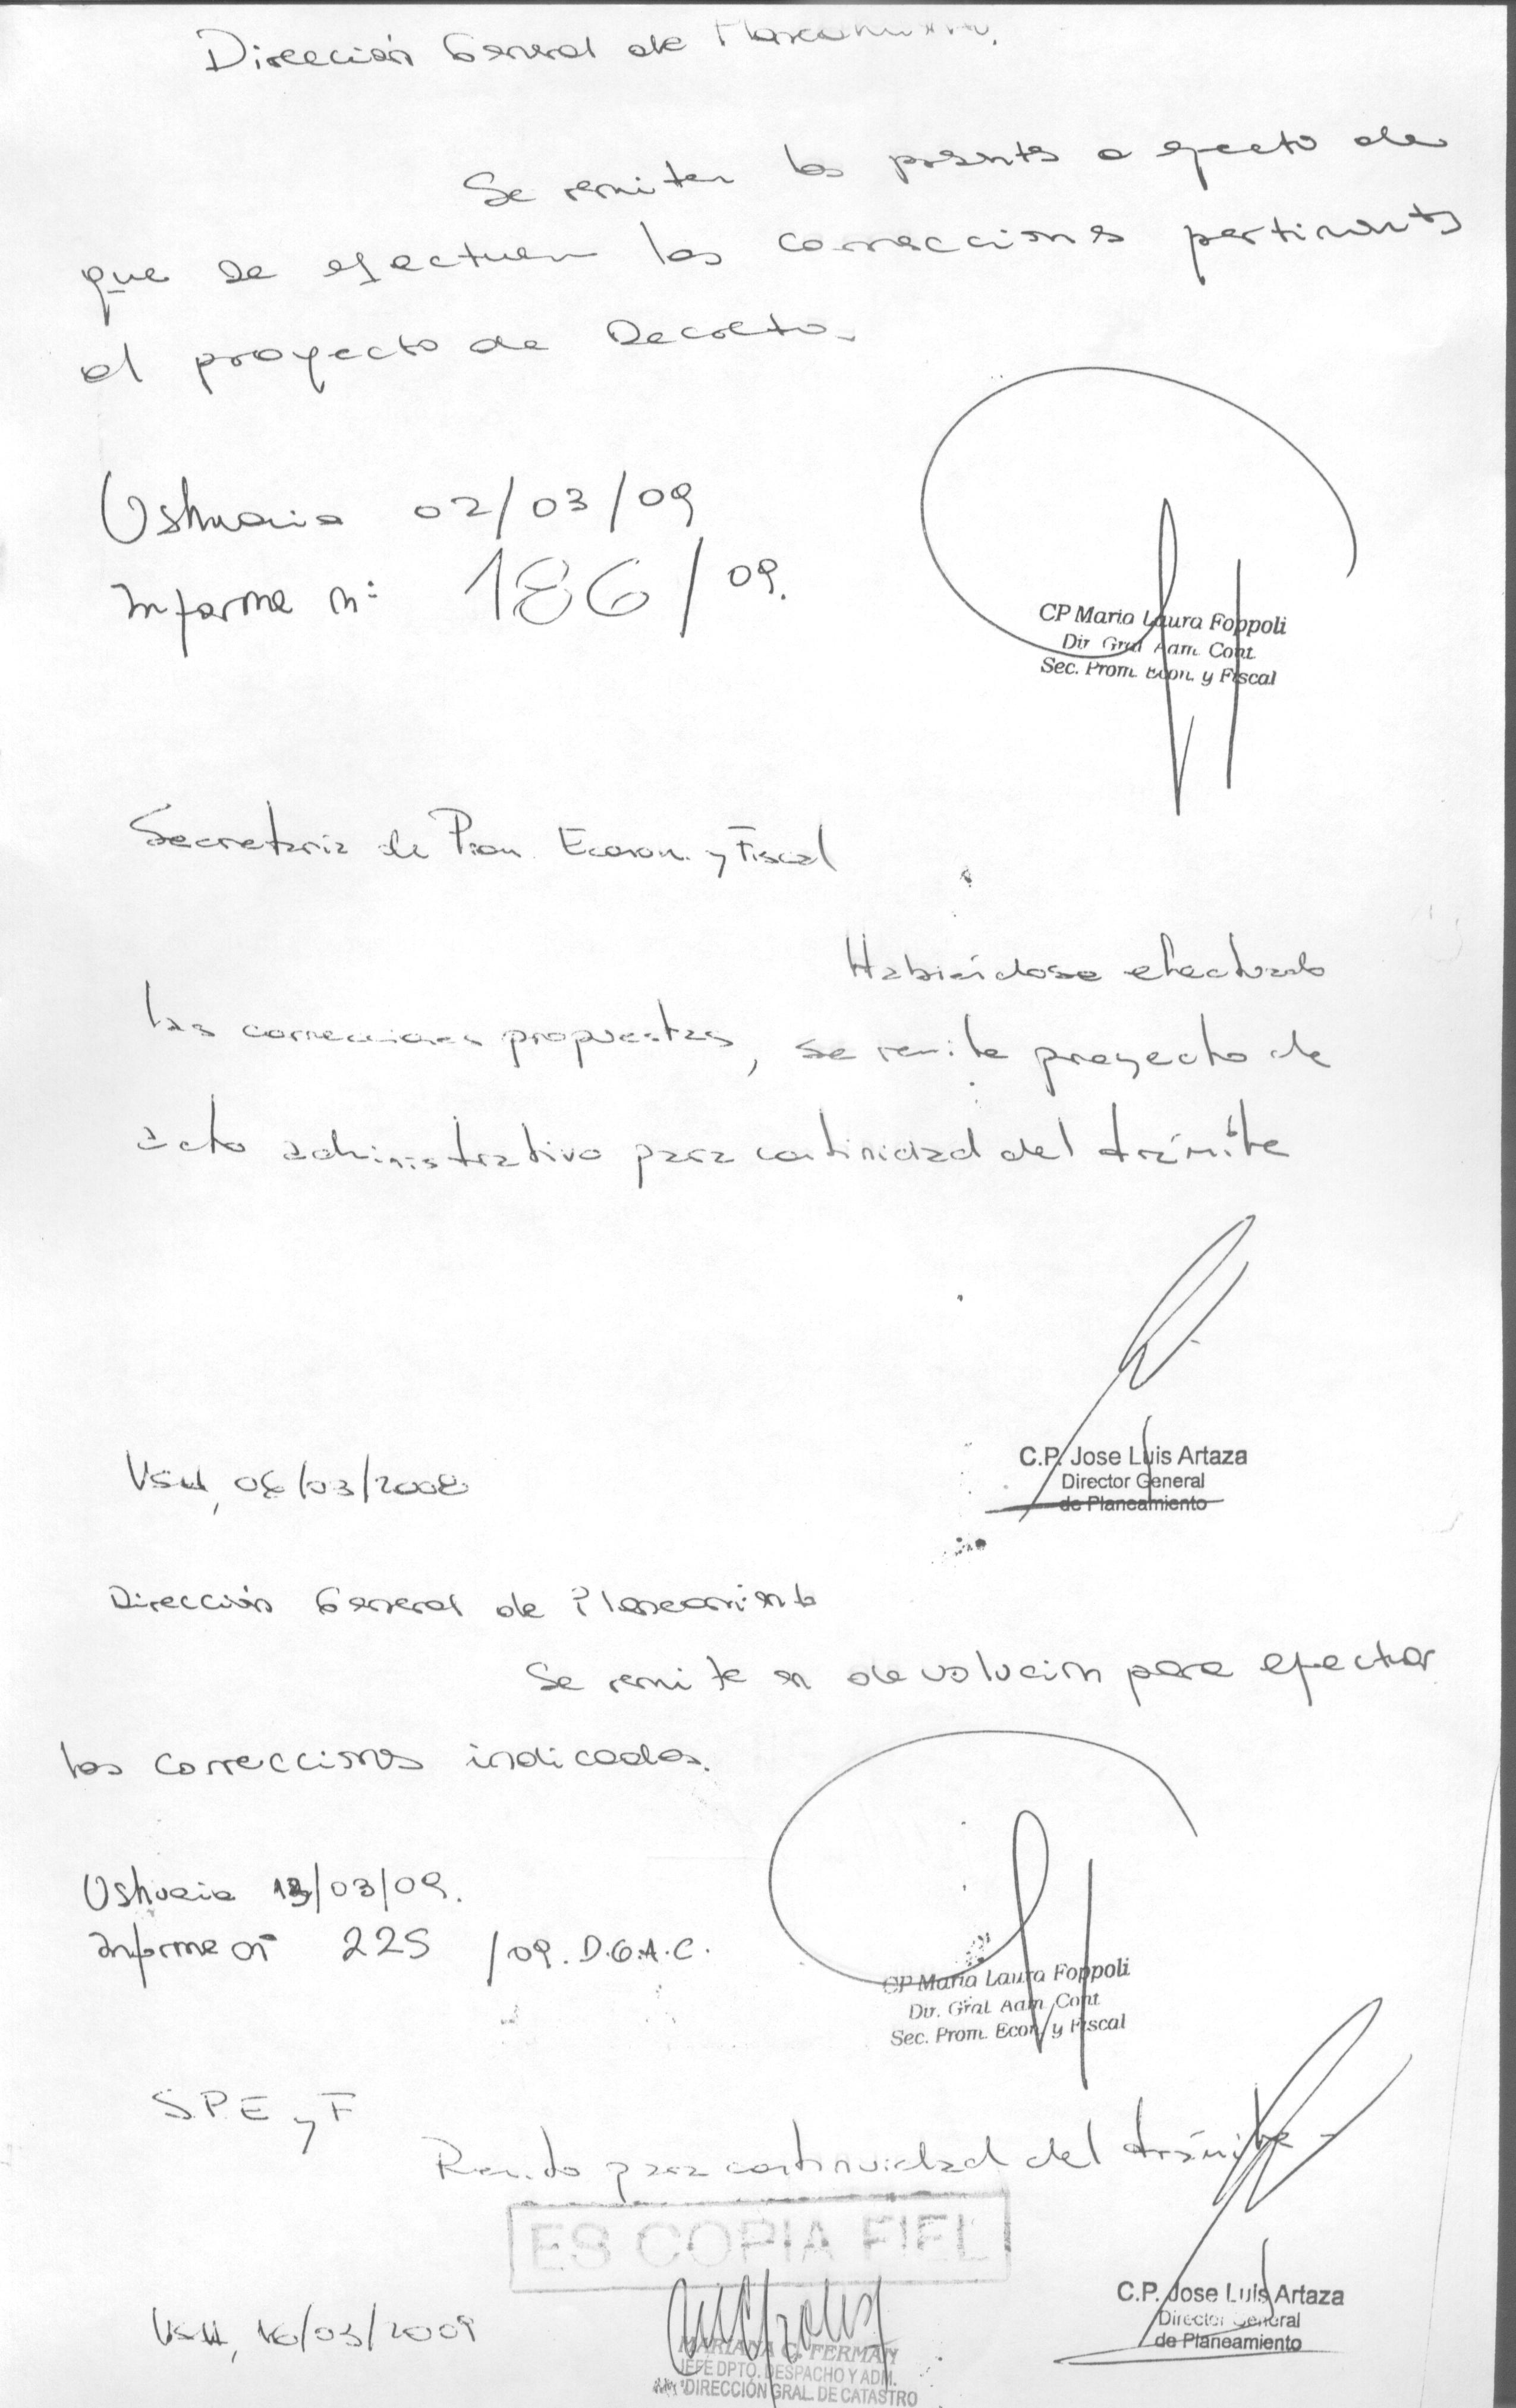 Dirección General de Planeamiento.
Se remiten las presentes a efecto de
que se efectuen las correcciones pertinentes
al proyecto de Decreto.
Ushuaia 02/03/09
Informe nº 186/09.
CP Maria Laura Foppoli
Dir. Gral Adm. Cont.
Sec. Prom. Econ. y Fiscal
Secretaria de Prom. Econom. y Fiscal
Habiéndose efectuado
las correcciones propuestas, se remite proyecto de
acto administrativo para continidad del trámite
C.P. Jose Luis Artaza
Director General
de Planeamiento
USH, /03/2008
Dirección General de Planeamiento
Se remite en devolución para efectuar
las correcciones indicadas.
Ushuaia 13/03/09.
Informe nº 225 /09. D.G.A.C.
CP Maria Laura Foppoli
Dir. Gral. Adm. Cont.
Sec. Prom. Econ. y Fiscal
S.P.E y F
Remito para continuidad del trámite.
ES COPIA FIEL
C.P. Jose Luis Artaza
Director General
de Planeamiento
USH, 16/03/2009
MARIANA G. FERMAN
JEFE DPTO. DESPACHO Y ADM.
DIRECCIÓN GRAL. DE CATASTRO